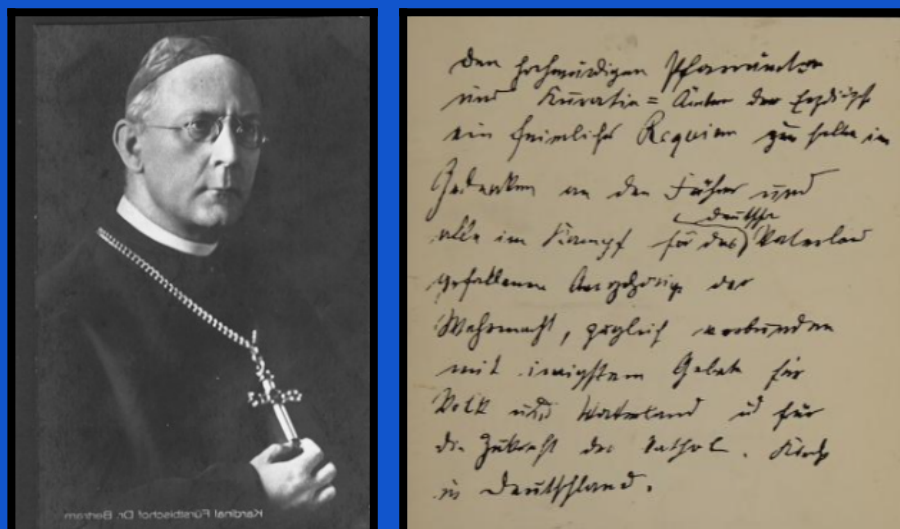 Kardinal Fürstbischof Dr. Bertram
den hochwürdigen Pfarrämtern
und Kuratie = Ämter der Erzdiöz
ein feierliches Requiem zu halten im
Gedenken an den Führer und
deutsche
alle im Kampf für das Vaterland
gefallenen Angehörige der
Wehrmacht, zugleich verbunden
mit innigstem Gebete für
Volk und Vaterland u für
die Zukunft der kathol. Kirche
in Deutschland.